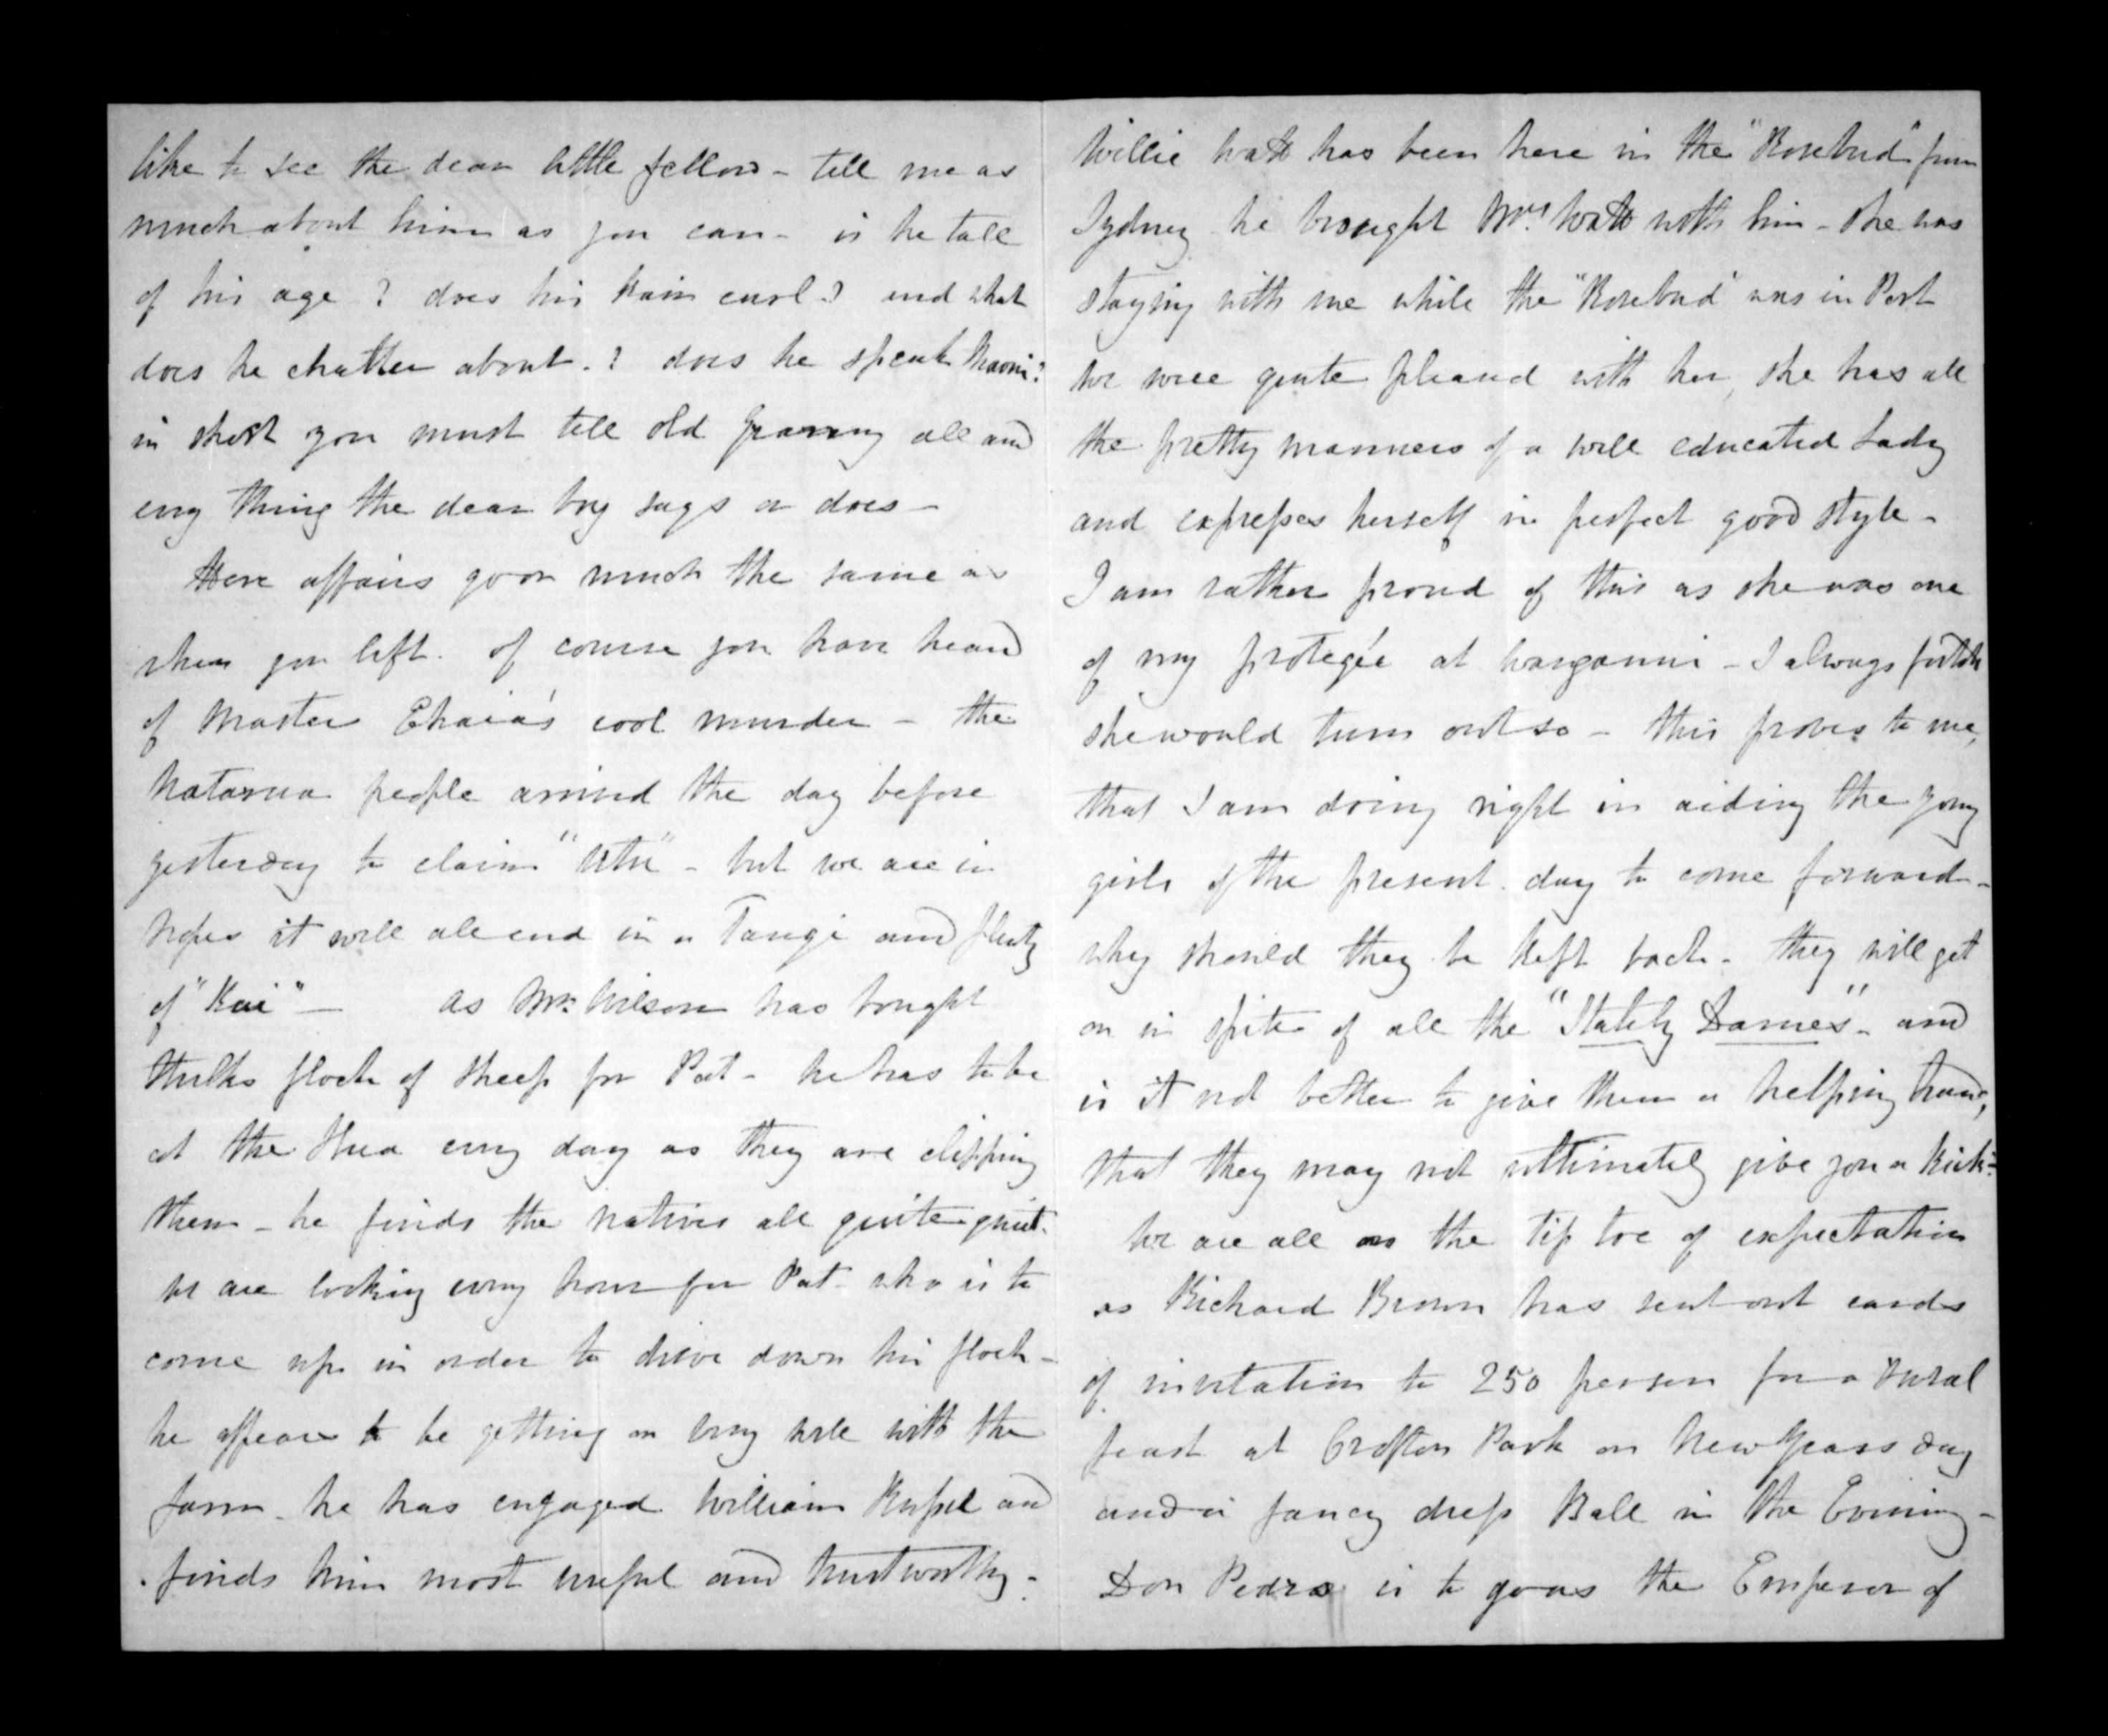 like to see the dear little fellow - tell me as
much about him as you can - is he tall
of his age ? does his hair curl ? and what
does he chatter about . ? does he speak Maori ?
in short you must tell old Granny all and
evry thing the dear boy says or does -
Here affairs go on much the same as
when you left . of course you have heard
of Master Ehaia's cool murder - the
Nataruа people arrived the day before
yesterday to claim "Utu" - but we are in
hopes it will all end in a Tangi and plenty
of "Kai" - as Mr. Wilson has bought
flock of sheep for Pat - he has to be
at the Hua evry day as they are clipping
them - he finds the natives all quite quiet .
we are looking evry hour for Pat - who is to
come up in order to drive down his flock -
he appears to be getting on very well with the
farm . he has engaged William Russel and
finds him most useful and trustworthy -
Willie Watt has been here in the "Rosebud" from
Sydney he brought Mrs. Watt with him - she was
staying with me while the "Rosebud" was in Port
we were quite pleased with her, she has all
the pretty manners of a well educated Lady
and expresses herself in perfect good style -
I am rather proud of this as she was one
of my protegée at Wanganui - I always
she would turn out so - this proves to me,
that I am doing right in aiding the young
girls of the present day to come forward -
why should they be kept back - they will get
on in spite of all the "Stately Dames" - and
is it not better to give them a helping hand,
that they may not ultimately give you a kick -
We are all on the tip toe of expectation
as Richard Brown has sent out cards
of invitation to 250 person for a rural
feast at Crofton Park on New Years day
and a fancy dress Ball in the Evening -
Don Pedro is to go as the Emperor of